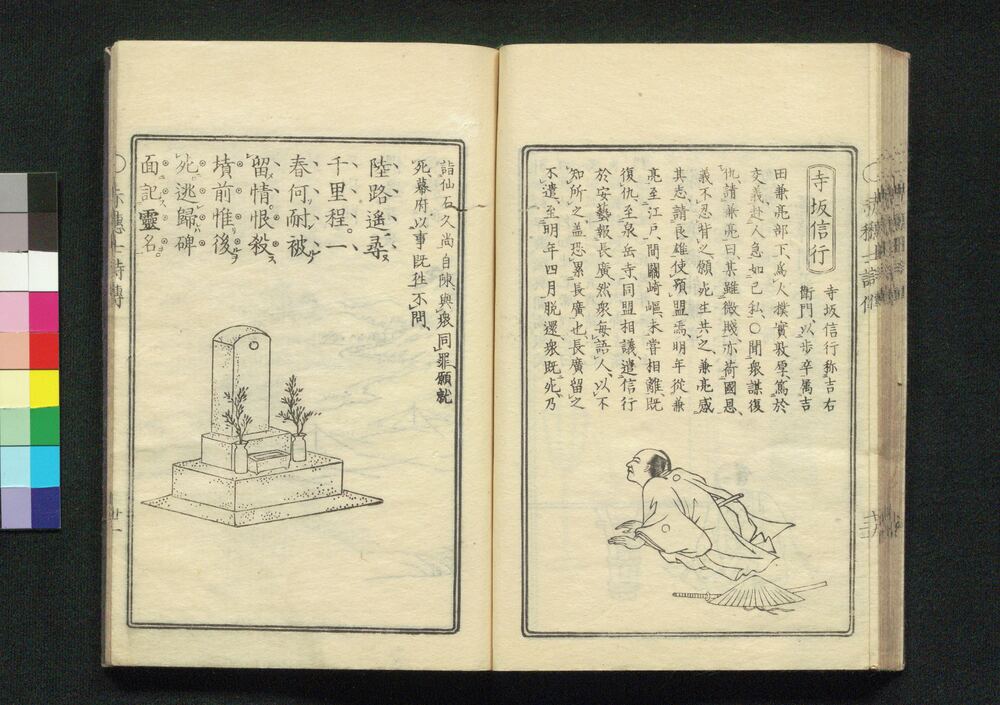 寺坂信行
寺坂信行称吉右
衛門、以歩卒属吉
田兼亮部下、為人撲實敦厚、篤於
交義、赴人急如己私、〇聞衆謀復
仇、請兼亮曰、某雖微賤、亦荷國恩、
義不忍背之、願死生共之、兼亮感
其志、請良雄使預盟焉、明年従兼
亮至江戸、間關崎嶇、未嘗相離、既
復仇、至泉岳寺、同盟相議、遣信行
於安藝、報長廣、然衆毎語人、以不
知所之、盖恐累長廣也、長廣留之
不遣、至明年四月脱還、衆既死、乃
詣仙石久尚自陳、與衆同罪、願就
死、幕府以事既徃不問、
陸路遙尋
千里程一
春何耐被
留情恨殺
墳前惟後
死逃歸碑
面記靈名